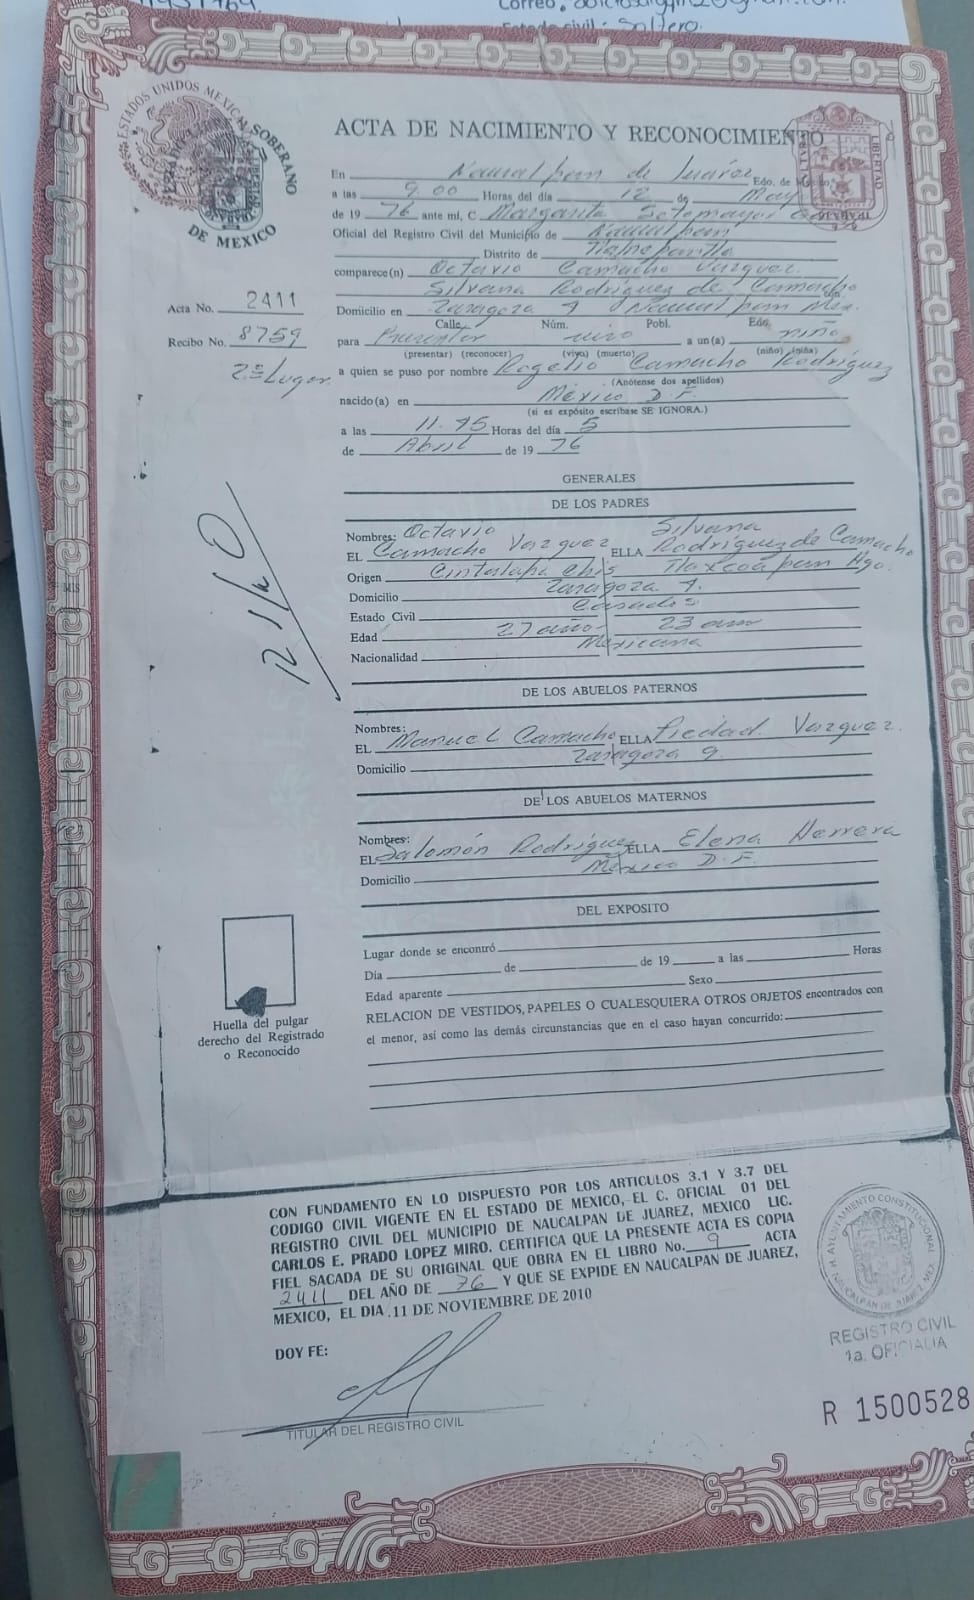 Correo.
Estado civil: Soltero.
ESTADOS UNIDOS MEXICANOS
ESTADO LIBRE Y SOBERANO
DE MEXICO
LIBERTAD
TRABAJO
ACTA DE NACIMIENTO Y RECONOCIMIENTO
En Naucalpan de Juárez Edo. de México
a las 9.00 Horas del día 12 de Mayo
de 19 76 ante mi, C Margarita Sotomayor
Oficial del Registro Civil del Municipio de Naucalpan
Distrito de Tlalnepantla
comparece(n) Octavio Camacho Vazquez
Silvana Rodríguez de Camacho
Acta No. 2411
Domicilio en Zaragoza 9 Naucalpan Mex.
Calle Núm. Pobl. Edo.
Recibo No. 8759
para Presentar vivo a un(a) niño
(presentar) (reconocer) (vivo) (muerto) (niño) (niña)
2º Lugar
a quien se puso por nombre Rogelio Camacho Rodríguez
(Anótense dos apellidos)
nacido(a) en México D.F.
(si es expósito escríbase SE IGNORA.)
a las 11.45 Horas del día 5
de Abril de 19 76
GENERALES
DE LOS PADRES
Nombres: Octavio Silvana
EL Camacho Vazquez ELLA Rodríguez de Camacho
Origen Cintalapa Chis Tlaxcoapan Hgo.
Domicilio Zaragoza 9.
Estado Civil Casados
Edad 27 años 23 años
Nacionalidad Mexicana
DE LOS ABUELOS PATERNOS
Nombres:
EL Manuel Camacho ELLA Piedad Vazquez
Domicilio Zaragoza 9
DE LOS ABUELOS MATERNOS
Nombres:
EL Salomón Rodríguez ELLA Elena Herrera
Domicilio México D.F.
DEL EXPOSITO
Lugar donde se encontró
Día de de 19 a las Horas
Edad aparente Sexo
RELACION DE VESTIDOS, PAPELES O CUALESQUIERA OTROS OBJETOS encontrados con
el menor, así como las demás circunstancias que en el caso hayan concurrido:
Huella del pulgar
derecho del Registrado
o Reconocido
CON FUNDAMENTO EN LO DISPUESTO POR LOS ARTICULOS 3.1 Y 3.7 DEL
CODIGO CIVIL VIGENTE EN EL ESTADO DE MEXICO, EL C. OFICIAL 01 DEL
REGISTRO CIVIL DEL MUNICIPIO DE NAUCALPAN DE JUAREZ, MEXICO LIC.
CARLOS E. PRADO LOPEZ MIRO. CERTIFICA QUE LA PRESENTE ACTA ES COPIA
FIEL SACADA DE SU ORIGINAL QUE OBRA EN EL LIBRO No. 9 ACTA
2411 DEL AÑO DE 76 Y QUE SE EXPIDE EN NAUCALPAN DE JUAREZ,
MEXICO, EL DIA .11 DE NOVIEMBRE DE 2010
DOY FE:
TITULAR DEL REGISTRO CIVIL
H. AYUNTAMIENTO CONSTITUCIONAL
NAUCALPAN DE JUAREZ, MEX.
REGISTRO CIVIL
1a. OFICIALIA
R 1500528